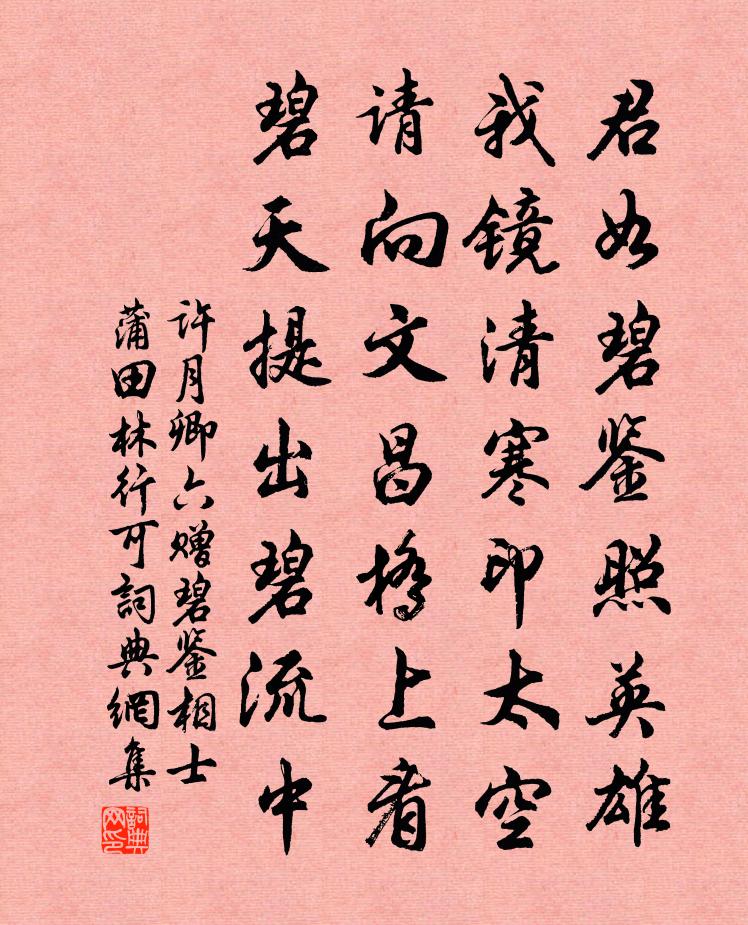 君如碧鉴照英雄
我镜清寒印太空
请向文昌桥上看
碧天提出碧流中
许月卿六赠碧鉴相士
蒲田林行可詞典網集
詞典网印